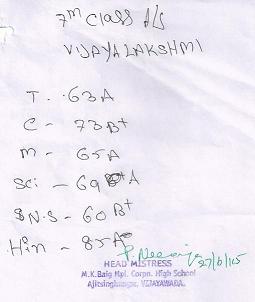 7th Class A/S
VIJAYA LAKSHMI
T. - 63A
C - 73B+
M - 65A
Sci - 69 A
S.N.S - 60B+
Hin - 85A
27/6/15
HEAD MISTRESS
M.K.Baig Mpl. Corpn. High School
Ajitsinghnagar, VIJAYAWADA.